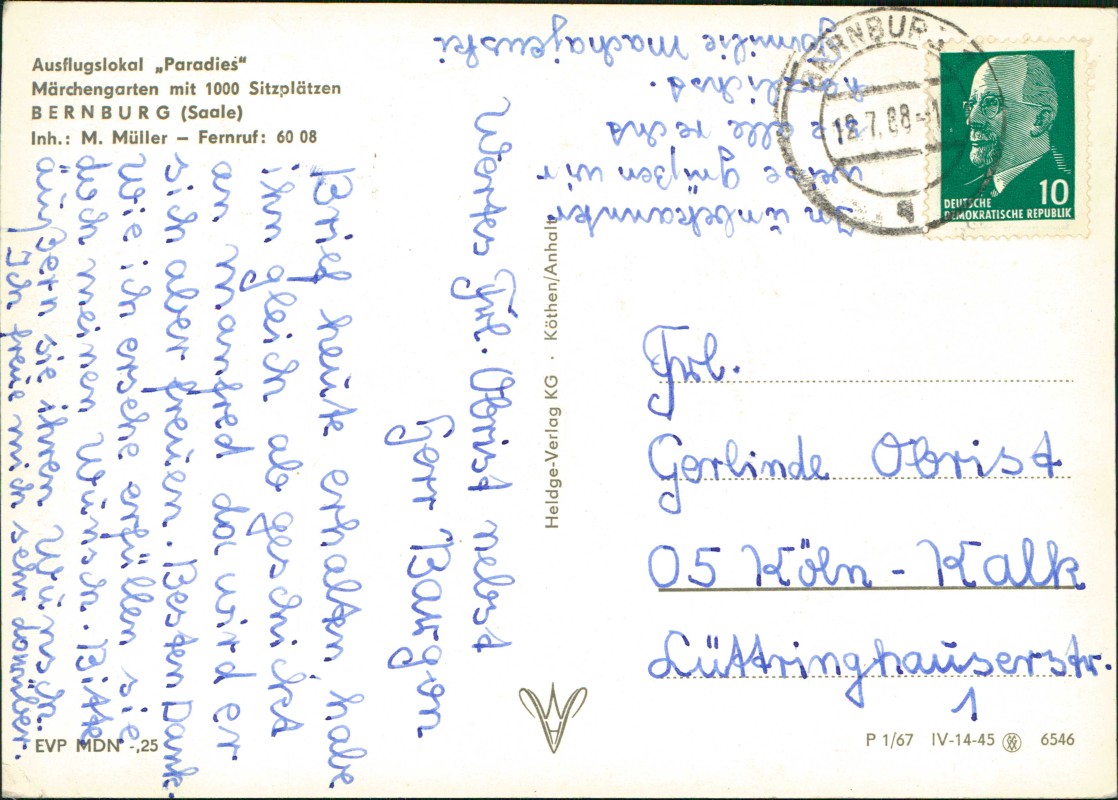 Ausflugslokal „Paradies“
Märchengarten mit 1000 Sitzplätzen
BERNBURG (Saale)
Inh.: M. Müller – Fernruf: 60 08
Wertes Frl. Obrist nebst
Herr Bargon
Brief heute erhalten, habe
ihn gleich ab geschickt
an manfred da wird er
sich aber freuen. Besten Dank.
Wie ich ersehe erfüllen sie
doch meinen Wunsch. Bitte
äußern sie ihren Wunsch.
Ich freue mich sehr darüber.
In ünbekannter
weise grüßen wir
sie alle recht
herzlichst.
Familie Machajewski
BERNBURG
18.7.68
DEUTSCHE
DEMOKRATISCHE REPUBLIK
10
Heldge-Verlag KG · Köthen/Anhalt
Frl.
Gerlinde Obrist
05 Köln - Kalk
Lüttringhauserstr.
1
EVP MDN -,25
P 1/67 IV-14-45 6546